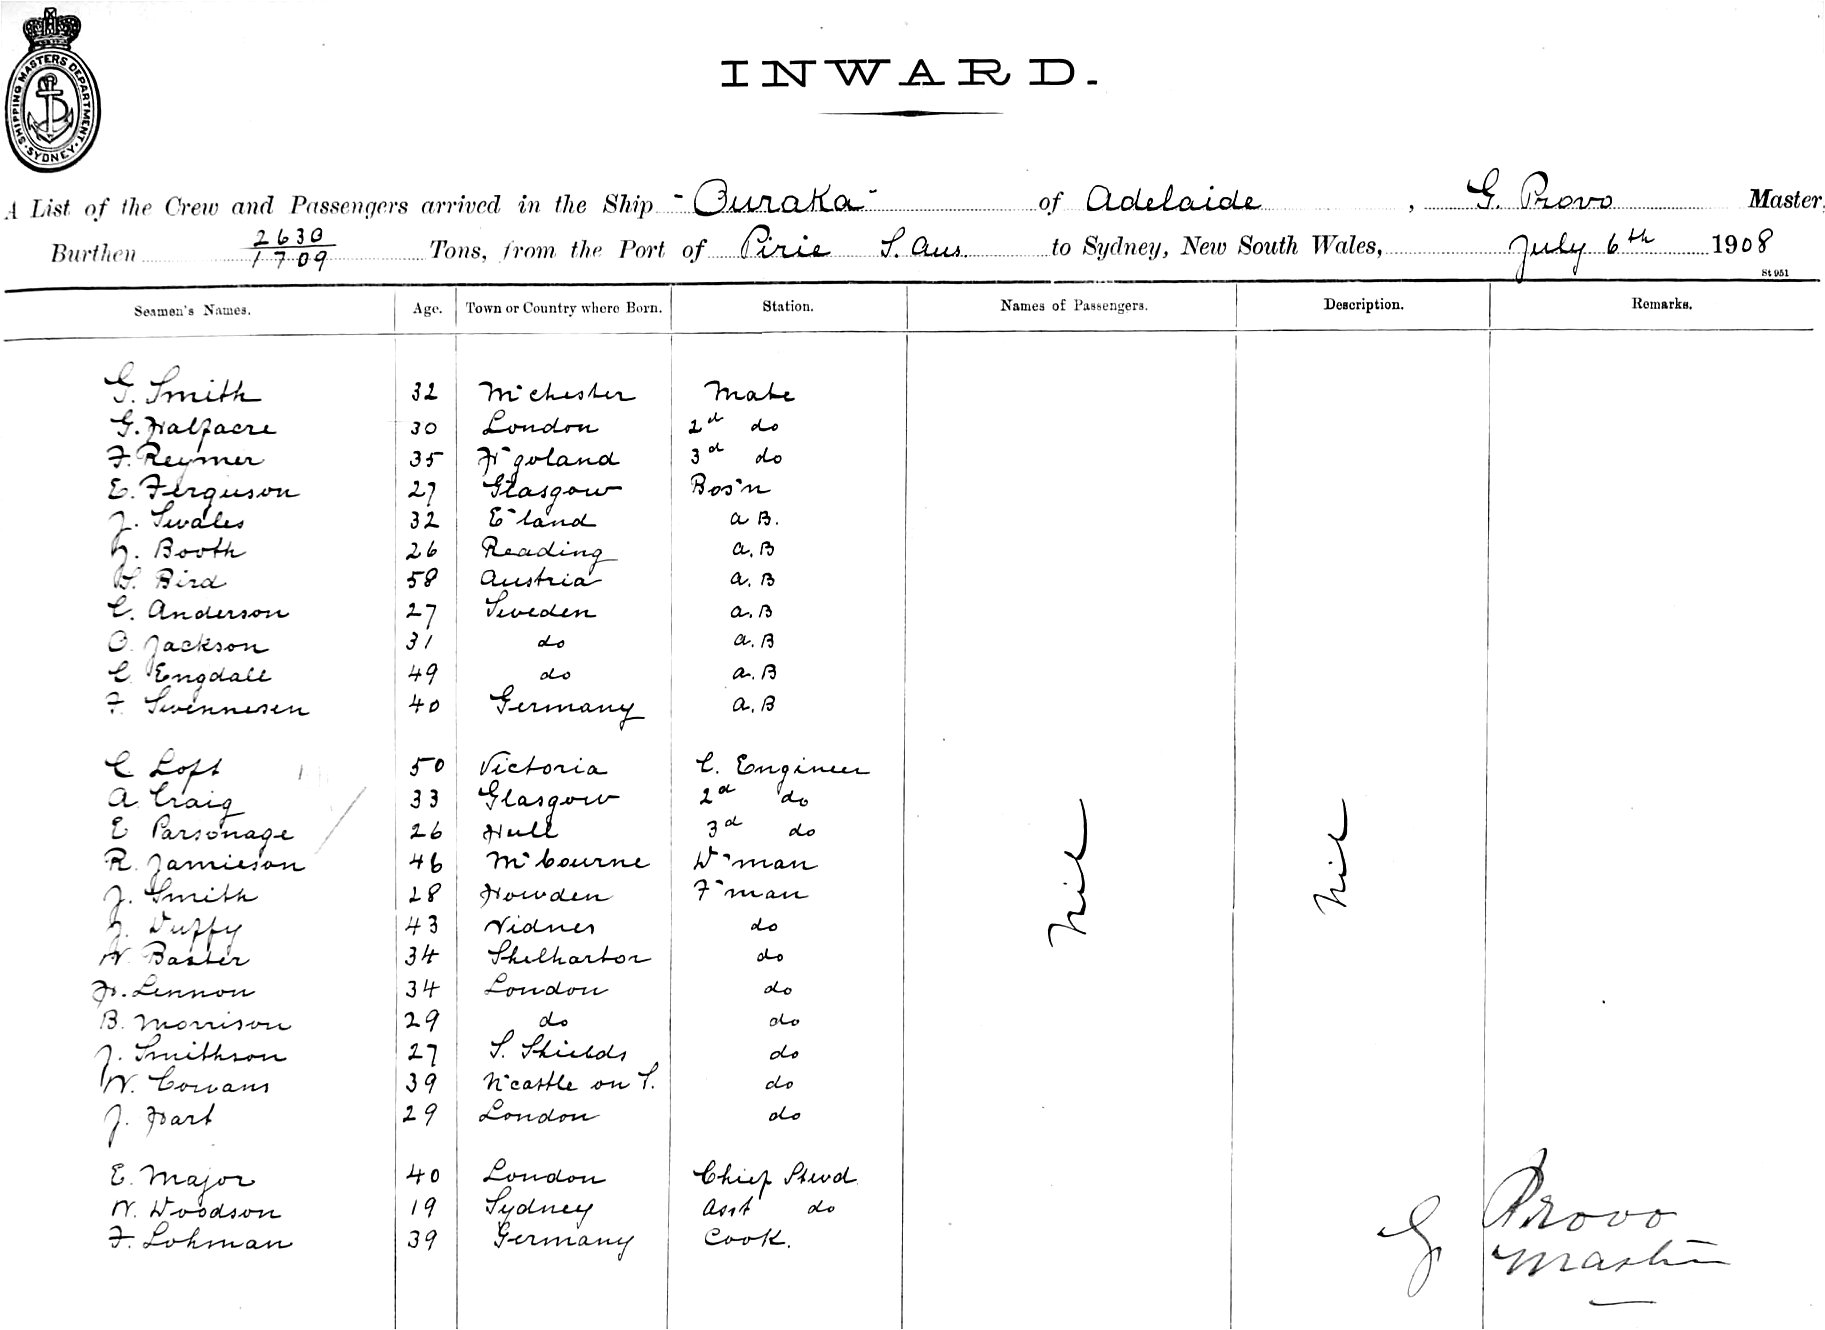 SHIPPING MASTERS DEPARTMENT. SYDNEY.
INWARD.
A List of the Crew and Passengers arrived in the Ship "Ouraka" of Adelaide, G. Provo Master,
Burthen 2630/1709 Tons, from the Port of Pirie S. Aus. to Sydney, New South Wales, July 6th 1908
St 951
Seamen's Names. Age. Town or Country where Born. Station. Names of Passengers. Description. Remarks.
G. Smith 32 M'chester Mate
G. Halfacre 30 London 2d do
F. Reymer 35 H'goland 3d do
E. Ferguson 27 Glasgow Bos'n
J. Swales 32 E'land A B.
J. Booth 26 Reading A.B
Bird 58 Austria A.B
C. Anderson 27 Sweden A.B
O. Jackson 31 do A.B
C. Engdall 49 do A.B
F. Swennesen 40 Germany A.B
C Loft 50 Victoria C. Engineer
A. Craig 33 Glasgow 2d do
E Parsonage 26 Hull 3d do
R. Jamieson 46 M'bourne D'man
J. Smith 28 Howden F'man
J. Duffy 43 Widnes do
W. Baxter 34 Shelharbor do
H. Lennon 34 London do
B. Morrison 29 do do
J. Smithson 27 S. Shields do
W. Cowans 39 N'castle on T. do
J. Hart 29 London do
Nil Nil
E. Major 40 London Chief Stwd
W. Woodson 19 Sydney Asst do
F. Lohman 39 Germany Cook.
G Provo
Master